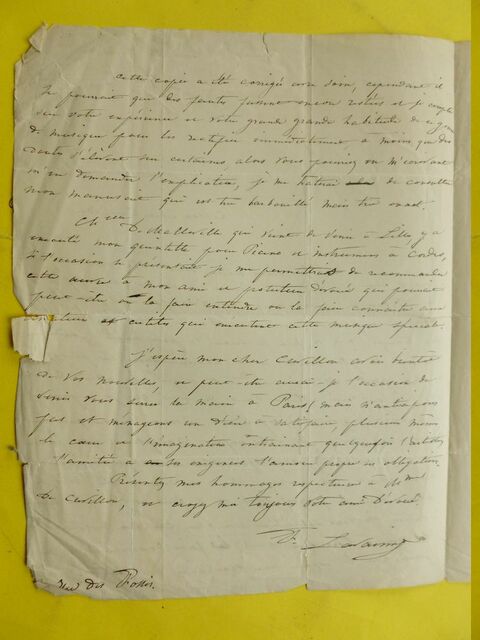 Cette copie a été corrigée avec soin, cependant il
se pourrait que des fautes fussent encore restées et je compte
sur votre expérience et votre grande grande habitude de ce genre
de musique pour les rectifier immédiatement à moins que des
doutes s'élèvent sur certaines, alors vous pourriez en m'écrivant
m'en demander l'explication, je me hâterai de consulter
mon manuscrit qui est très barbouillé mais très exact.
De Malleville qui vient de venir à Lille y a
exécuté mon quintette pour Piano et instruments à Cordes,
si l'occasion se présentait je me permettrais de recommander
cette œuvre à mon ami et protecteur dévoué qui pourrait
peut-être ou la faire entendre ou la faire connaître aux
artistes qui exécutent cette musique spéciale.
J'espère mon cher Cuvillon avoir bientôt
de vos nouvelles, et peut-être aurai-je l'occasion de
venir vous serrer la main à Paris (mais n'anticipons
pas et ménageons un désir à satisfaire, plusieurs
le cœur et l'imagination entraînant quelquefois l'artiste)
l'amitié a ses exigences l'amour propre ses obligations
Présentez mes hommages respectueux à Mme
De Cuvillon, et croyez moi toujours votre ami Dévoué
F. Lavainne
rue des Fossés.